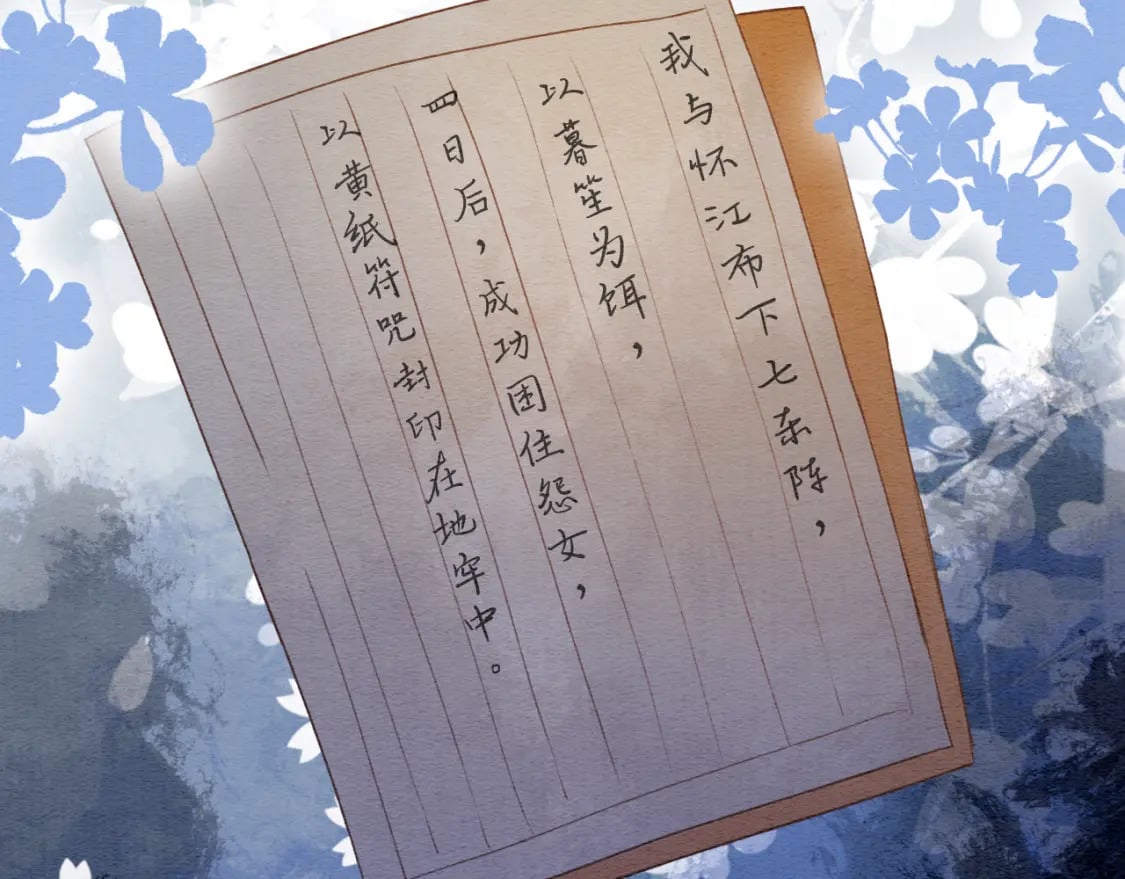 我与怀江布下七东阵，
以暮笙为饵，
四日后，成功困住怨女，
以黄纸符咒封印在地牢中。